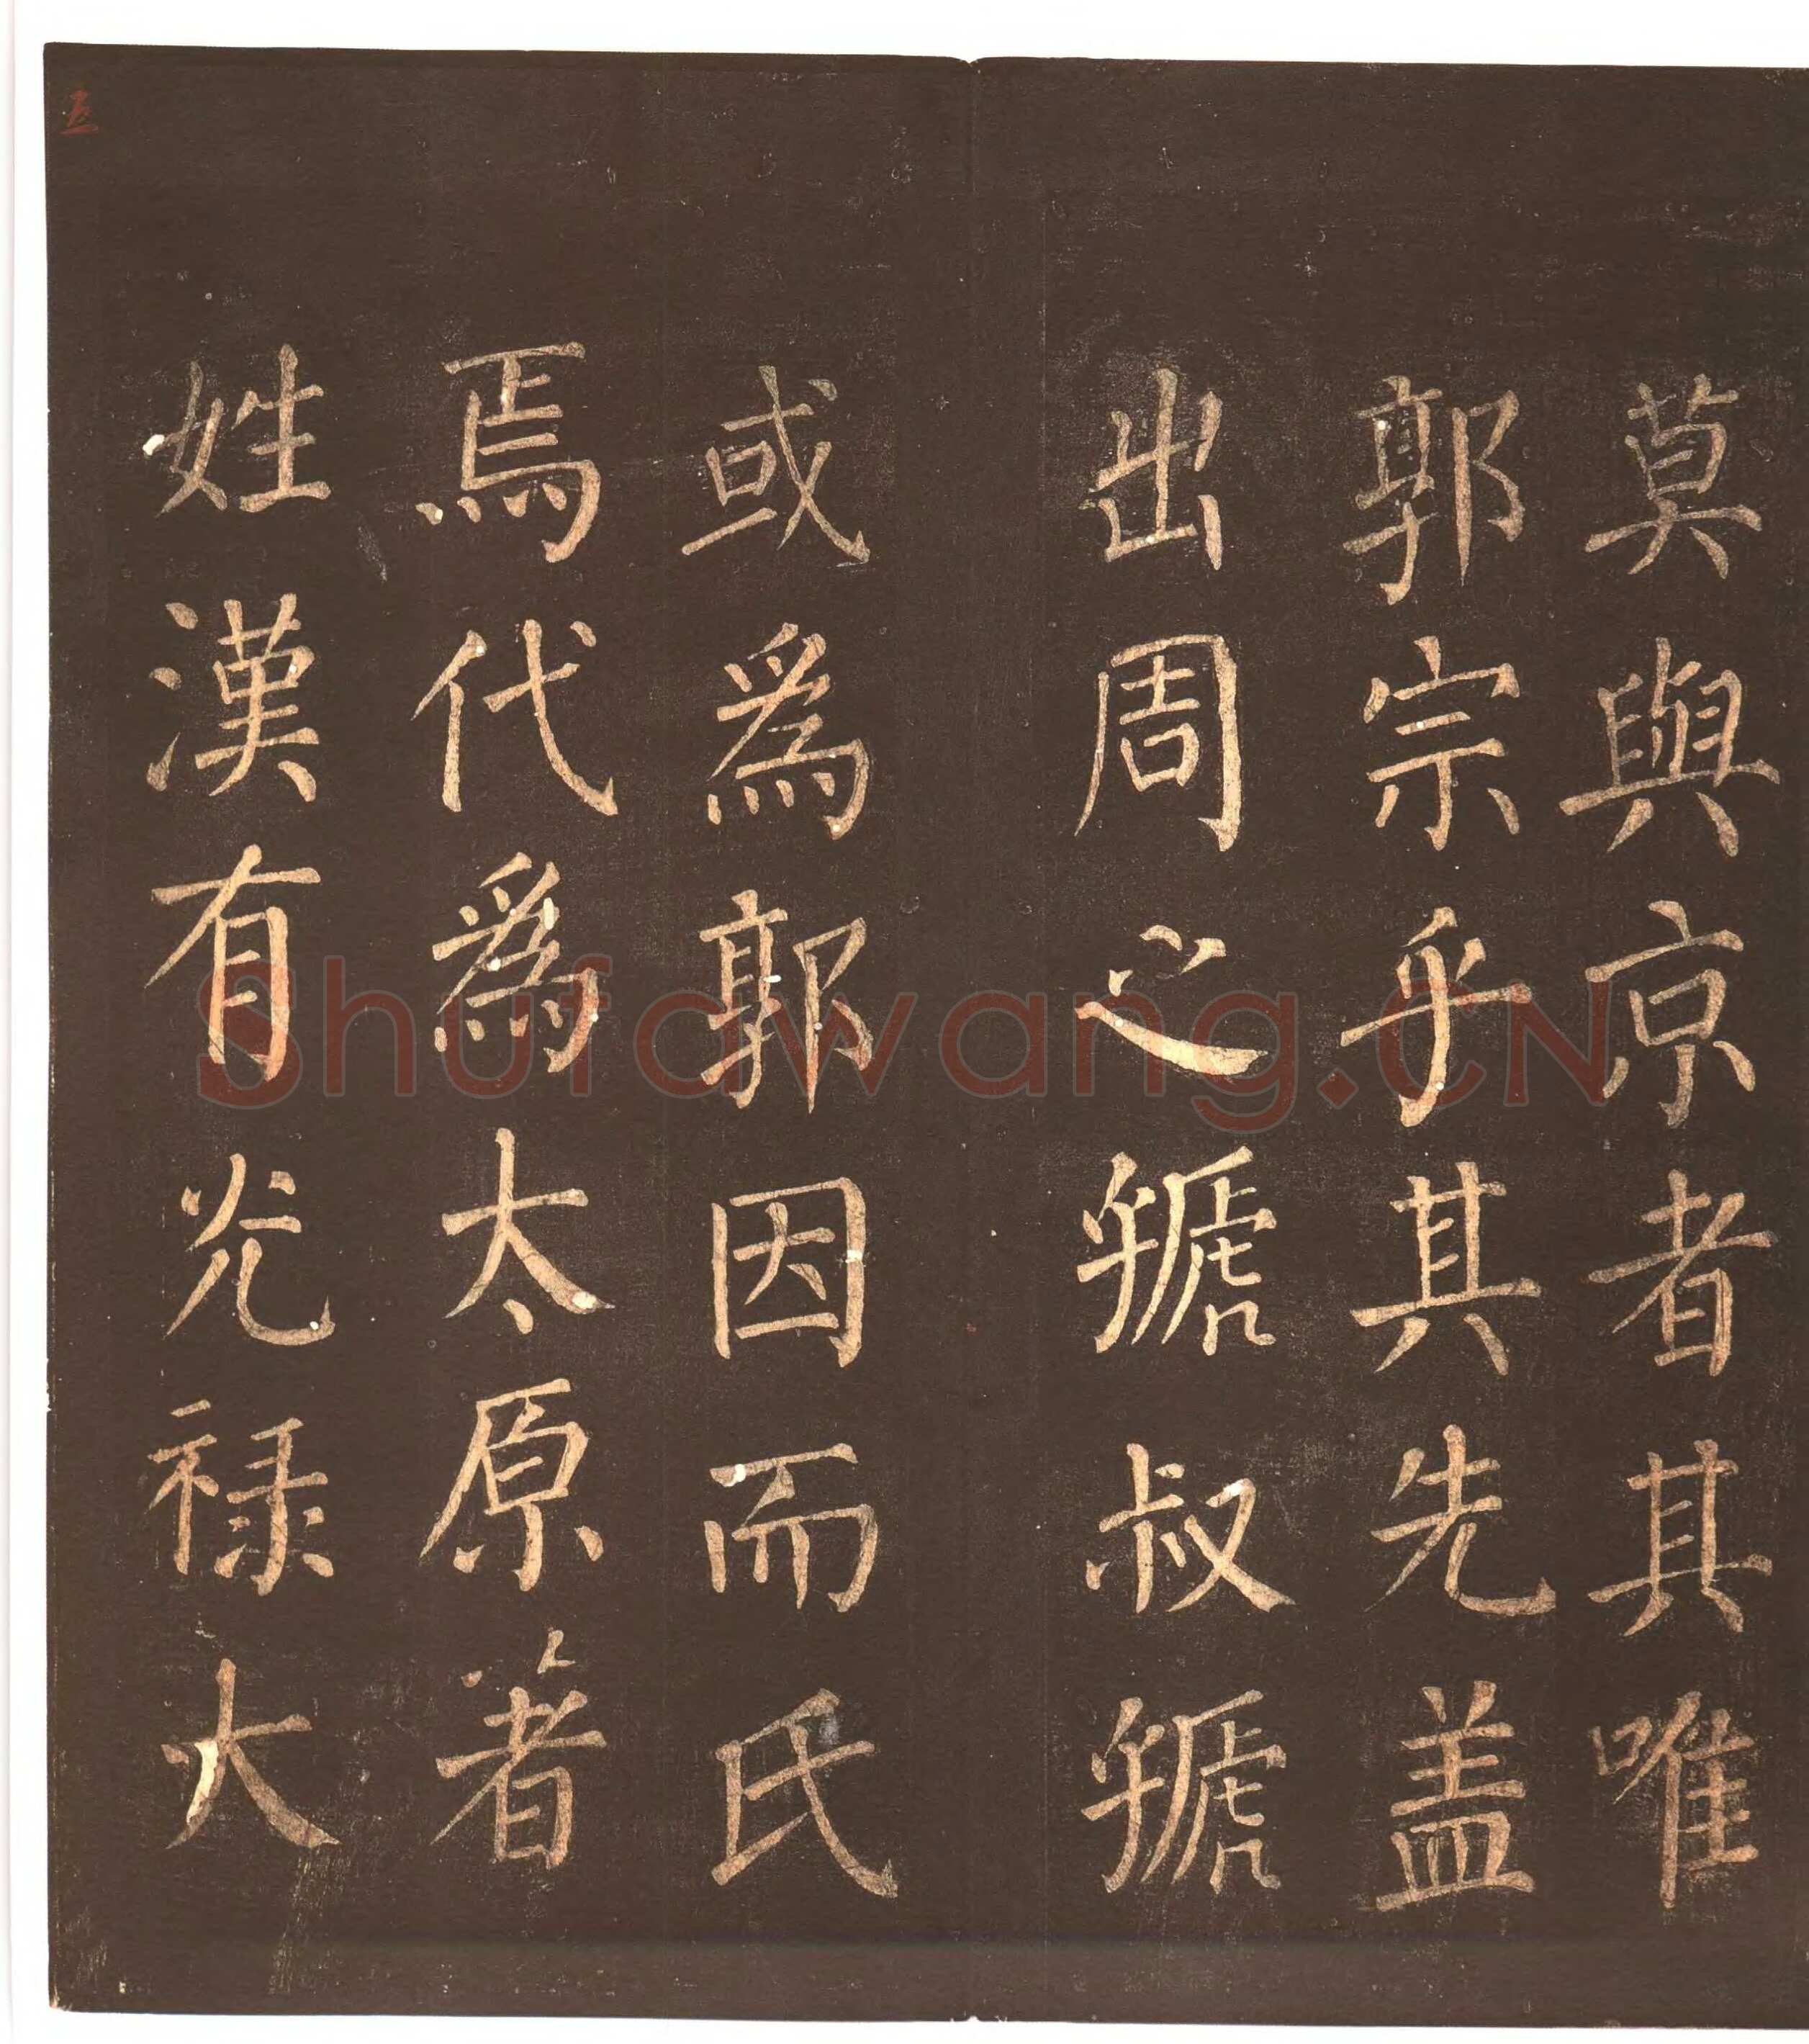 莫與京者其唯
郭宗乎其先盖
出周之虢叔虢
或為郭因而氏
焉代為太原著
姓漢有光禄大
Shufawang.CN